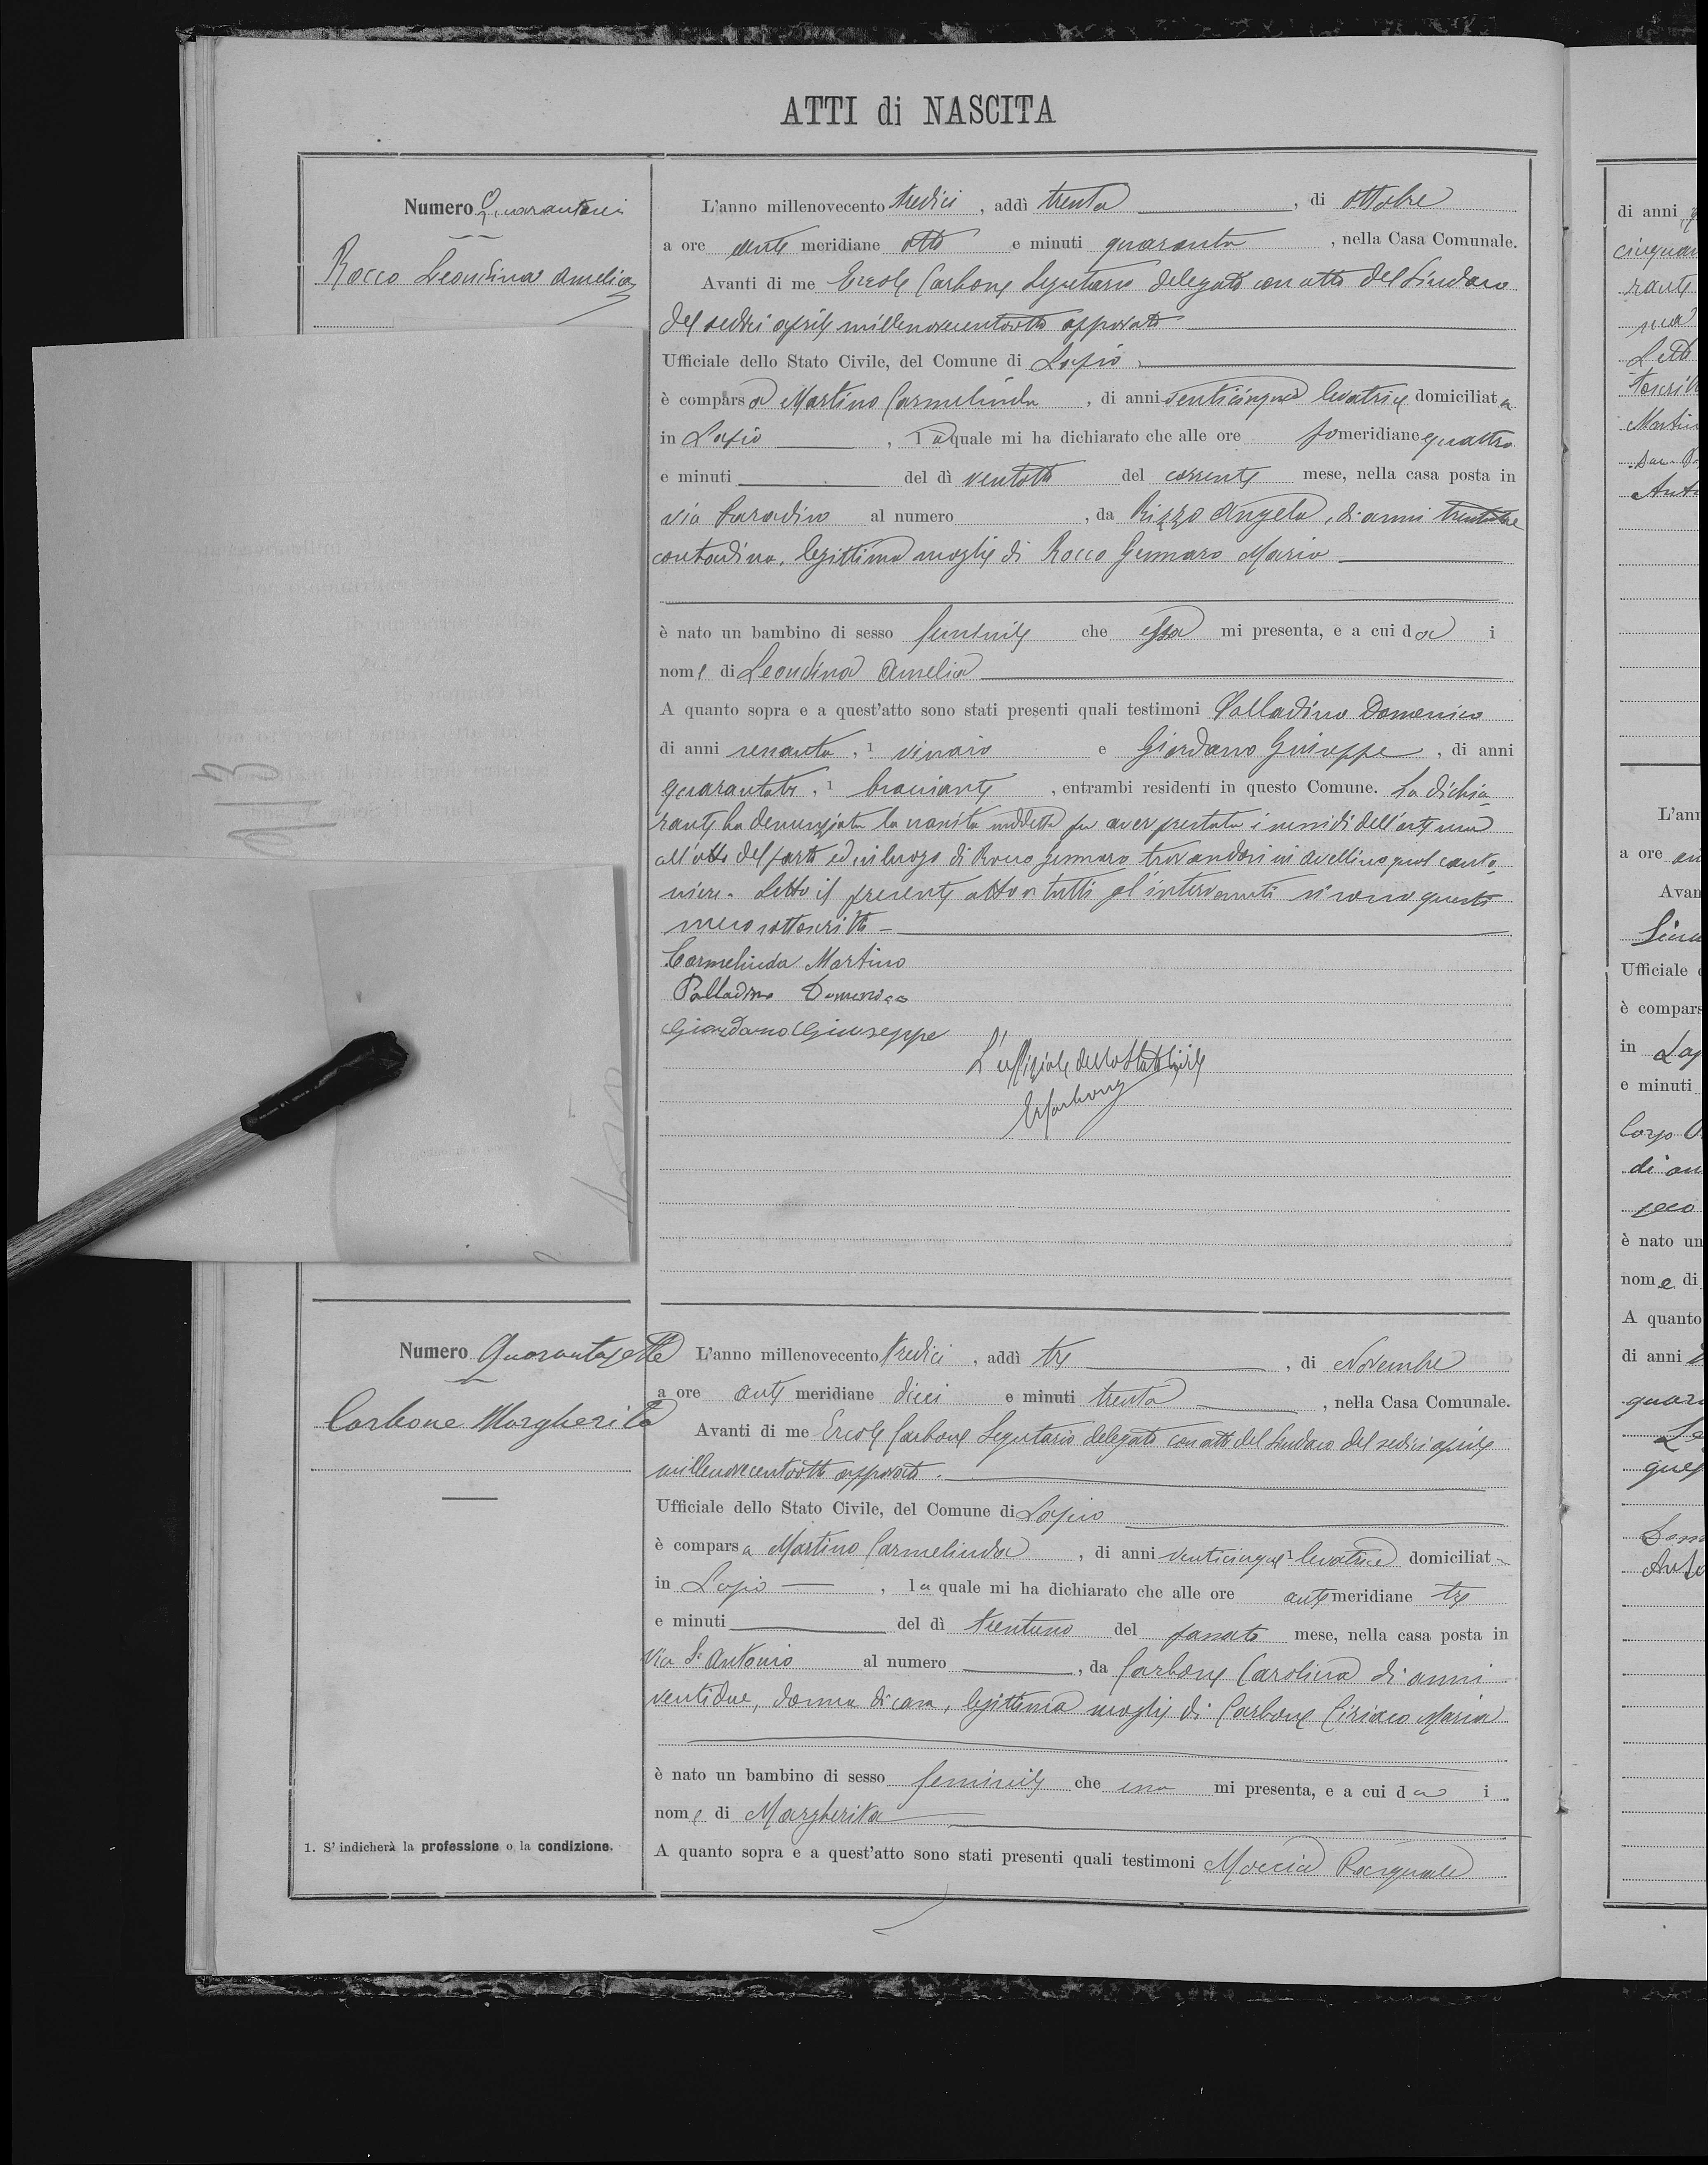 ATTI di NASCITA
Numero Quarantasei
Rocco Leondina Amelia
L'anno millenovecento tredici, addì trenta, di ottobre
a ore ante meridiane otto e minuti quaranta, nella Casa Comunale.
Avanti di me Ercole Carbone Segretario delegato con atto del Sindaco
del sedici aprile millenovecentootto approvato
Ufficiale dello Stato Civile, del Comune di Lapio
è comparsa Martino Carmelinda, di anni venticinque levatrice domiciliata
in Lapio, la quale mi ha dichiarato che alle ore pomeridiane quattro
e minuti del dì ventotto del corrente mese, nella casa posta in
via Paradiso al numero, da Rizzo Angela, di anni trentatre
contadina, legittima moglie di Rocco Gennaro Maria
è nato un bambino di sesso feminile che essa mi presenta, e a cui da i
nome di Leondina Amelia
A quanto sopra e a quest'atto sono stati presenti quali testimoni Palladino Domenico
di anni sessanta, 1 vinaio e Giordano Giuseppe, di anni
quarantatre, 1 bracciante, entrambi residenti in questo Comune. La dichia-
rante ha denunziata la nascita suddetta per aver prestata i sussidi dell'arte sua
all'atto del parto ed in luogo di Rocco Gennaro trovandosi in Avellino qual canto-
niere. Letto il presente atto a tutti gl'intervenuti si sono questi
meco sottoscritti -
Carmelinda Martino
Palladino Domenico
Giordano Giuseppe
L'uffiziale dello Stato Civile
ECarbone
Numero Quarantasette
Carbone Margherita
L'anno millenovecento tredici, addì tre, di Novembre
a ore ante meridiane dieci e minuti trenta, nella Casa Comunale.
Avanti di me Ercole Carbone Segretario delegato con atto del Sindaco del sedici aprile
millenovecentootto approvato.
Ufficiale dello Stato Civile, del Comune di Lapio
è comparsa Martino Carmelinda, di anni venticinque 1 levatrice domiciliata
in Lapio, la quale mi ha dichiarato che alle ore antemeridiane tre
e minuti del dì trentuno del passato mese, nella casa posta in
Via S. Antonio al numero, da Carbone Carolina di anni
ventidue, donna di casa, legittima moglie di Carbone Ciriaco Maria
è nato un bambino di sesso feminile che essa mi presenta, e a cui da i
nome di Margherita
A quanto sopra e a quest'atto sono stati presenti quali testimoni Moccia Pasquale
1. S' indicherà la professione o la condizione.
di anni
rante
Letto
Martin
L'an
a ore
Avan
Ufficiale
è compars
in Lap
e minuti
Corso
di an
è nato un
nome di
A quanto
di anni